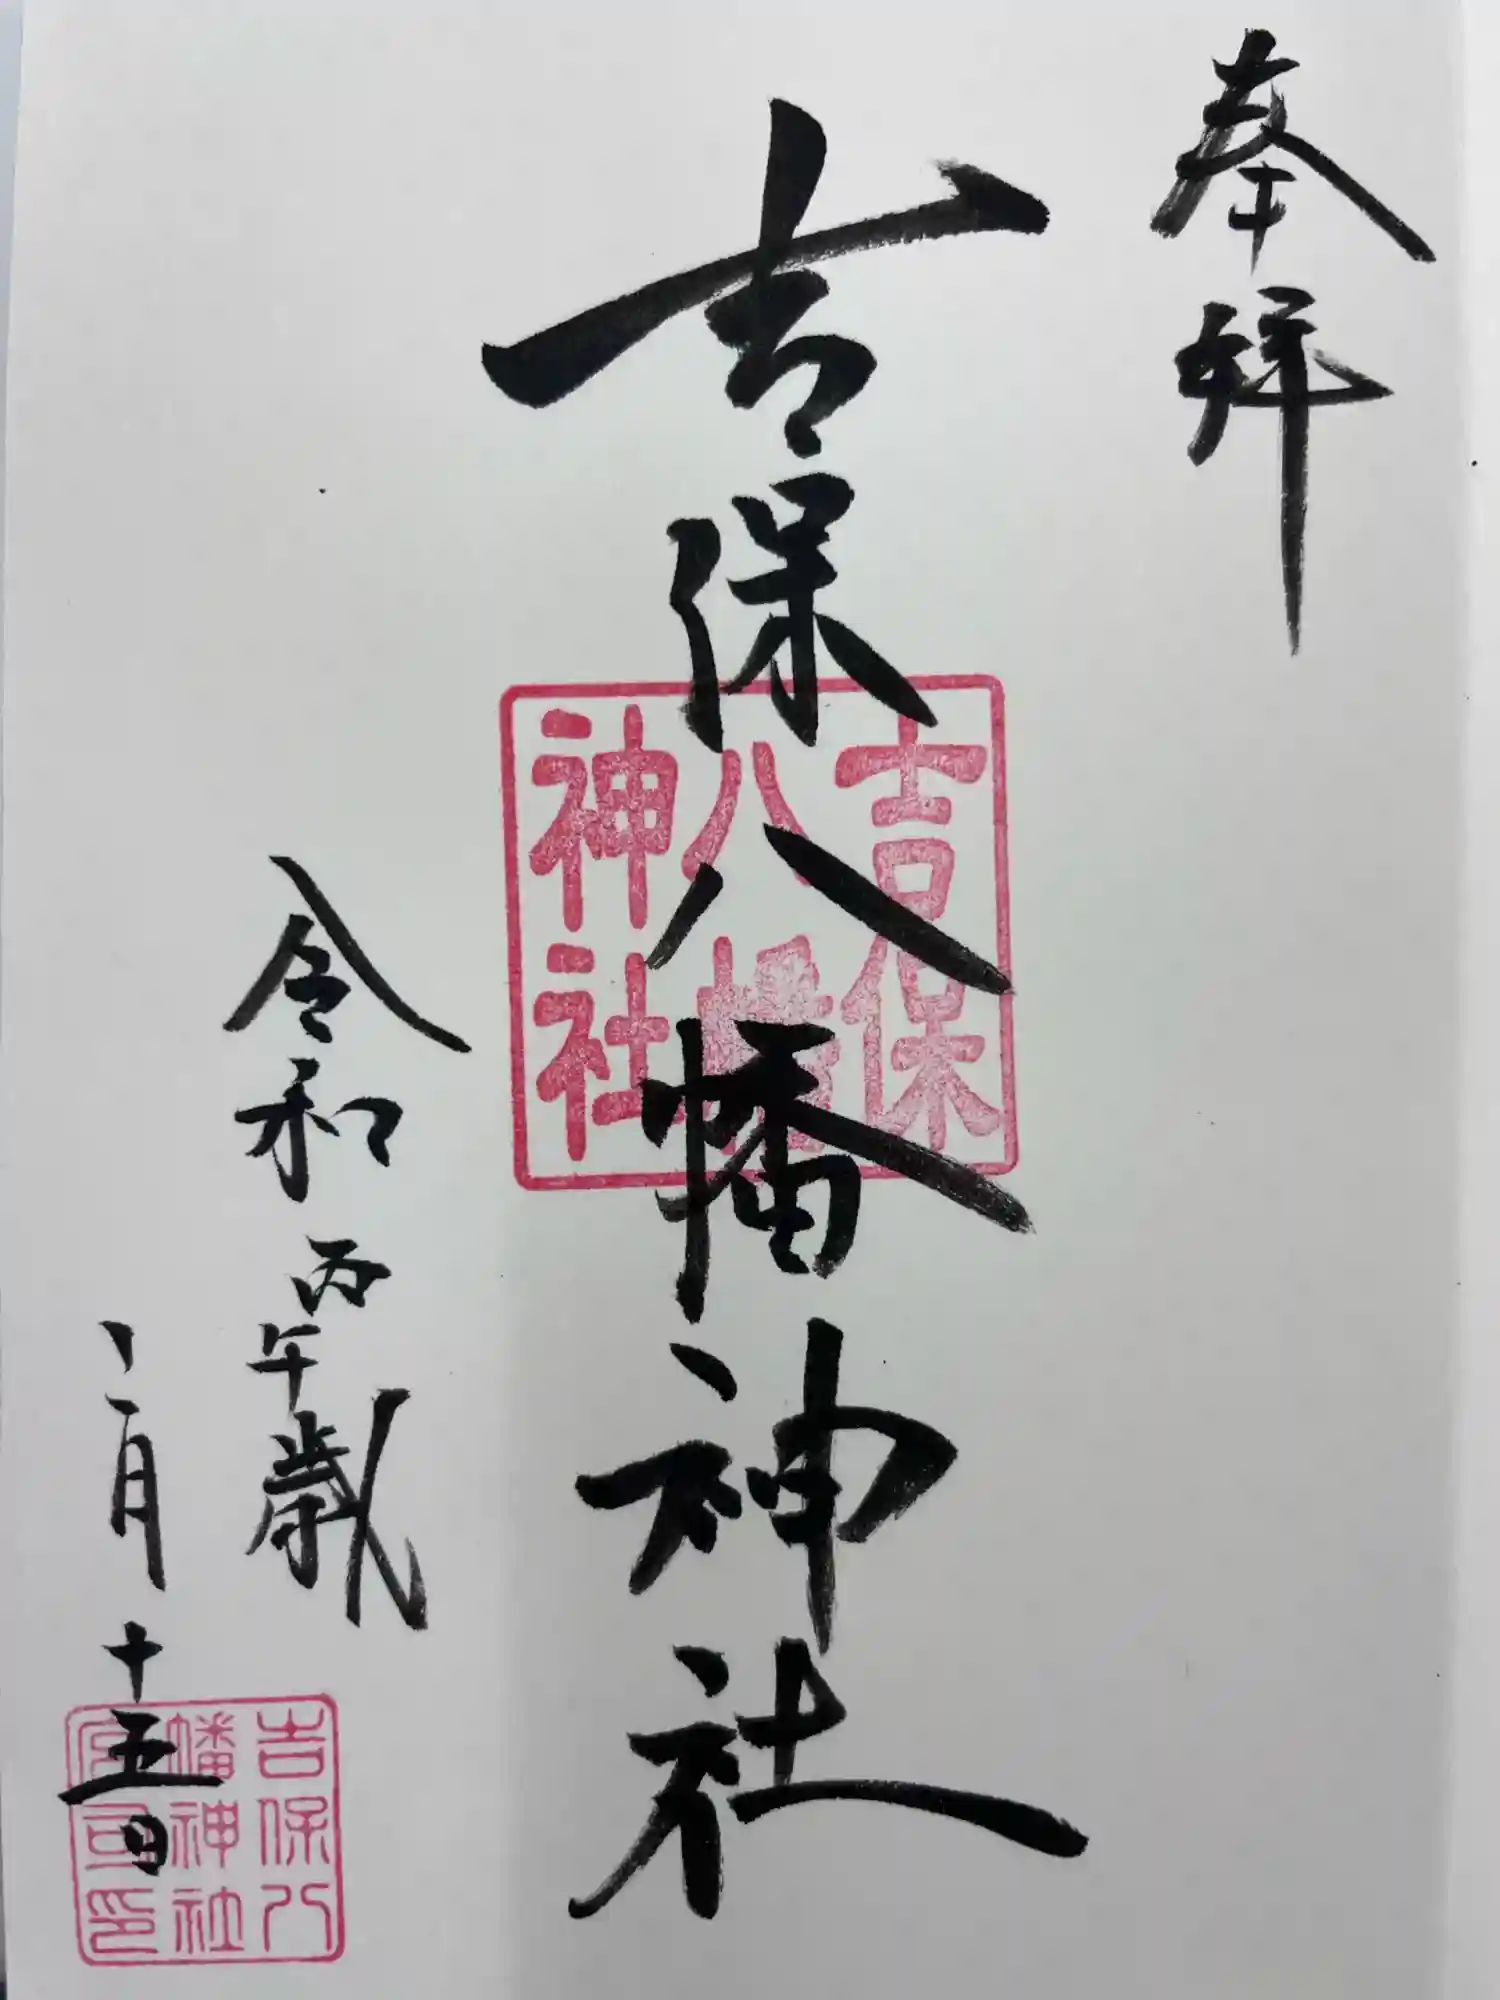 奉拝
吉保八幡神社
吉保
八幡
神社
令和丙午歳
二月十五日
吉保八
幡神社
宮司印